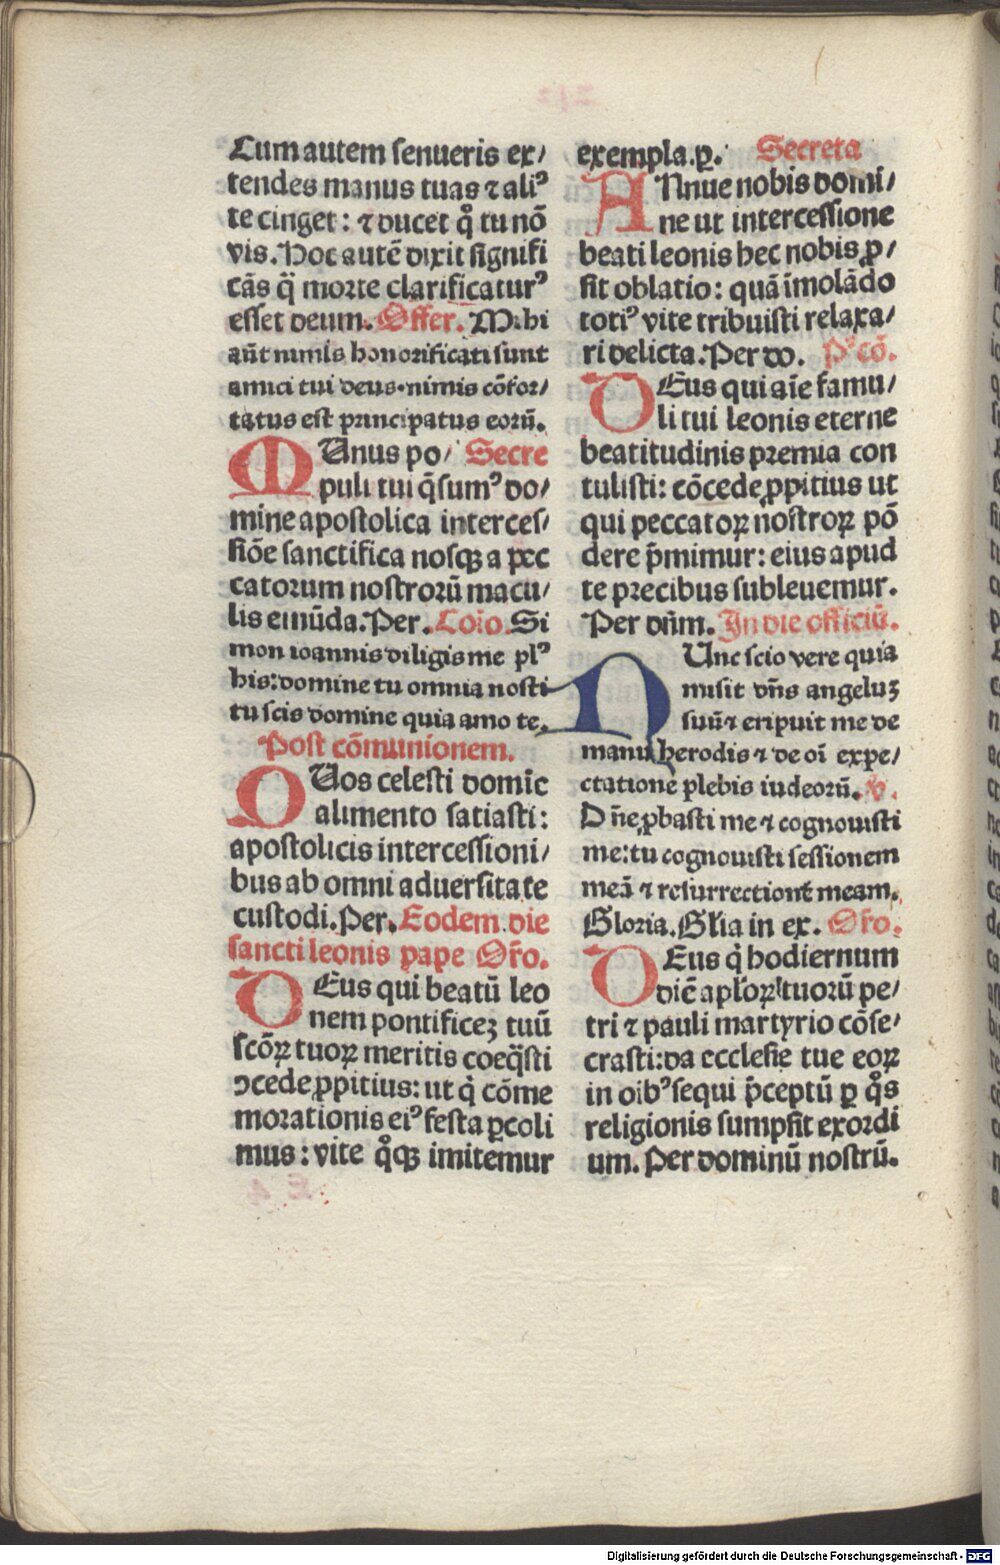 Cum autem senueris ex/
tendes manus tuas ⁊ aliꝰ
te cinget: ⁊ ducet qͦ tu nō
vis. Hoc autē dixit signifi
cās q̈ morte clarificaturꝰ
esset deum. Offer. Mihi
aūt nimis honorificati sunt
amici tui deus·nimis cōfor/
tatus est principatus eorū.
MUnus po/ Secre
puli tui q̄sumꝰ do/
mine apostolica interces/
siōe sanctifica nosqꝫ a pec
catorum nostrorū macu/
lis emūda. Per. Coīo. Si
mon ioannis diligis me plꝰ
his: domine tu omnia nosti
tu scis domine quia amo te.
Post cōmunionem.
QUos celesti domīe
alimento satiasti:
apostolicis intercessioni/
bus ab omni aduersitate
custodi. Per. Eodem die
sancti leonis pape Or̄o.
DEus qui beatū leo
nem pontificeꝫ tuū
scōꝝ tuoꝝ meritis coeq̈sti
ↄcede ꝓpitius: ut q̇ cōme
morationis eiꝰ festa ꝑcoli
mus: vite qͦqꝫ imitemur
exempla. ꝑ. Secreta
ANnue nobis domi/
ne ut intercessione
beati leonis hec nobis ꝓ/
sit oblatio: quā īmolādo
totiꝰ vite tribuisti relaxa/
ri delicta. Per do. Pꝰcō.
DEus qui aīe famu/
li tui leonis eterne
beatitudinis premia con
tulisti: cōcede ꝓpitius ut
qui peccatoꝝ nostroꝝ pō
dere p̄mimur: eius apud
te precibus subleuemur.
Per dn̄m. In die officiū.
NUnc scio vere quia
misit dn̄s angeluꝫ
suū ⁊ eripuit me de
manu herodis ⁊ de oī expe/
ctatione plebis iudeorū. v.
Dn̄e ꝓbasti me ⁊ cognouisti
me: tu cognouisti sessionem
meā ⁊ resurrectionē meam.
Gloria. Gl̄ia in ex. Or̄o.
DEus q̇ hodiernum
diē apl̄oꝝ tuorū pe/
tri ⁊ pauli martyrio cōse/
crasti: da ecclesie tue eoꝝ
in oibꝰ sequi p̄ceptū ꝑ qͦs
religionis sumpsit exordi
um. Per dominū nostrū.
Digitalisierung gefördert durch die Deutsche Forschungsgemeinschaft - DFG